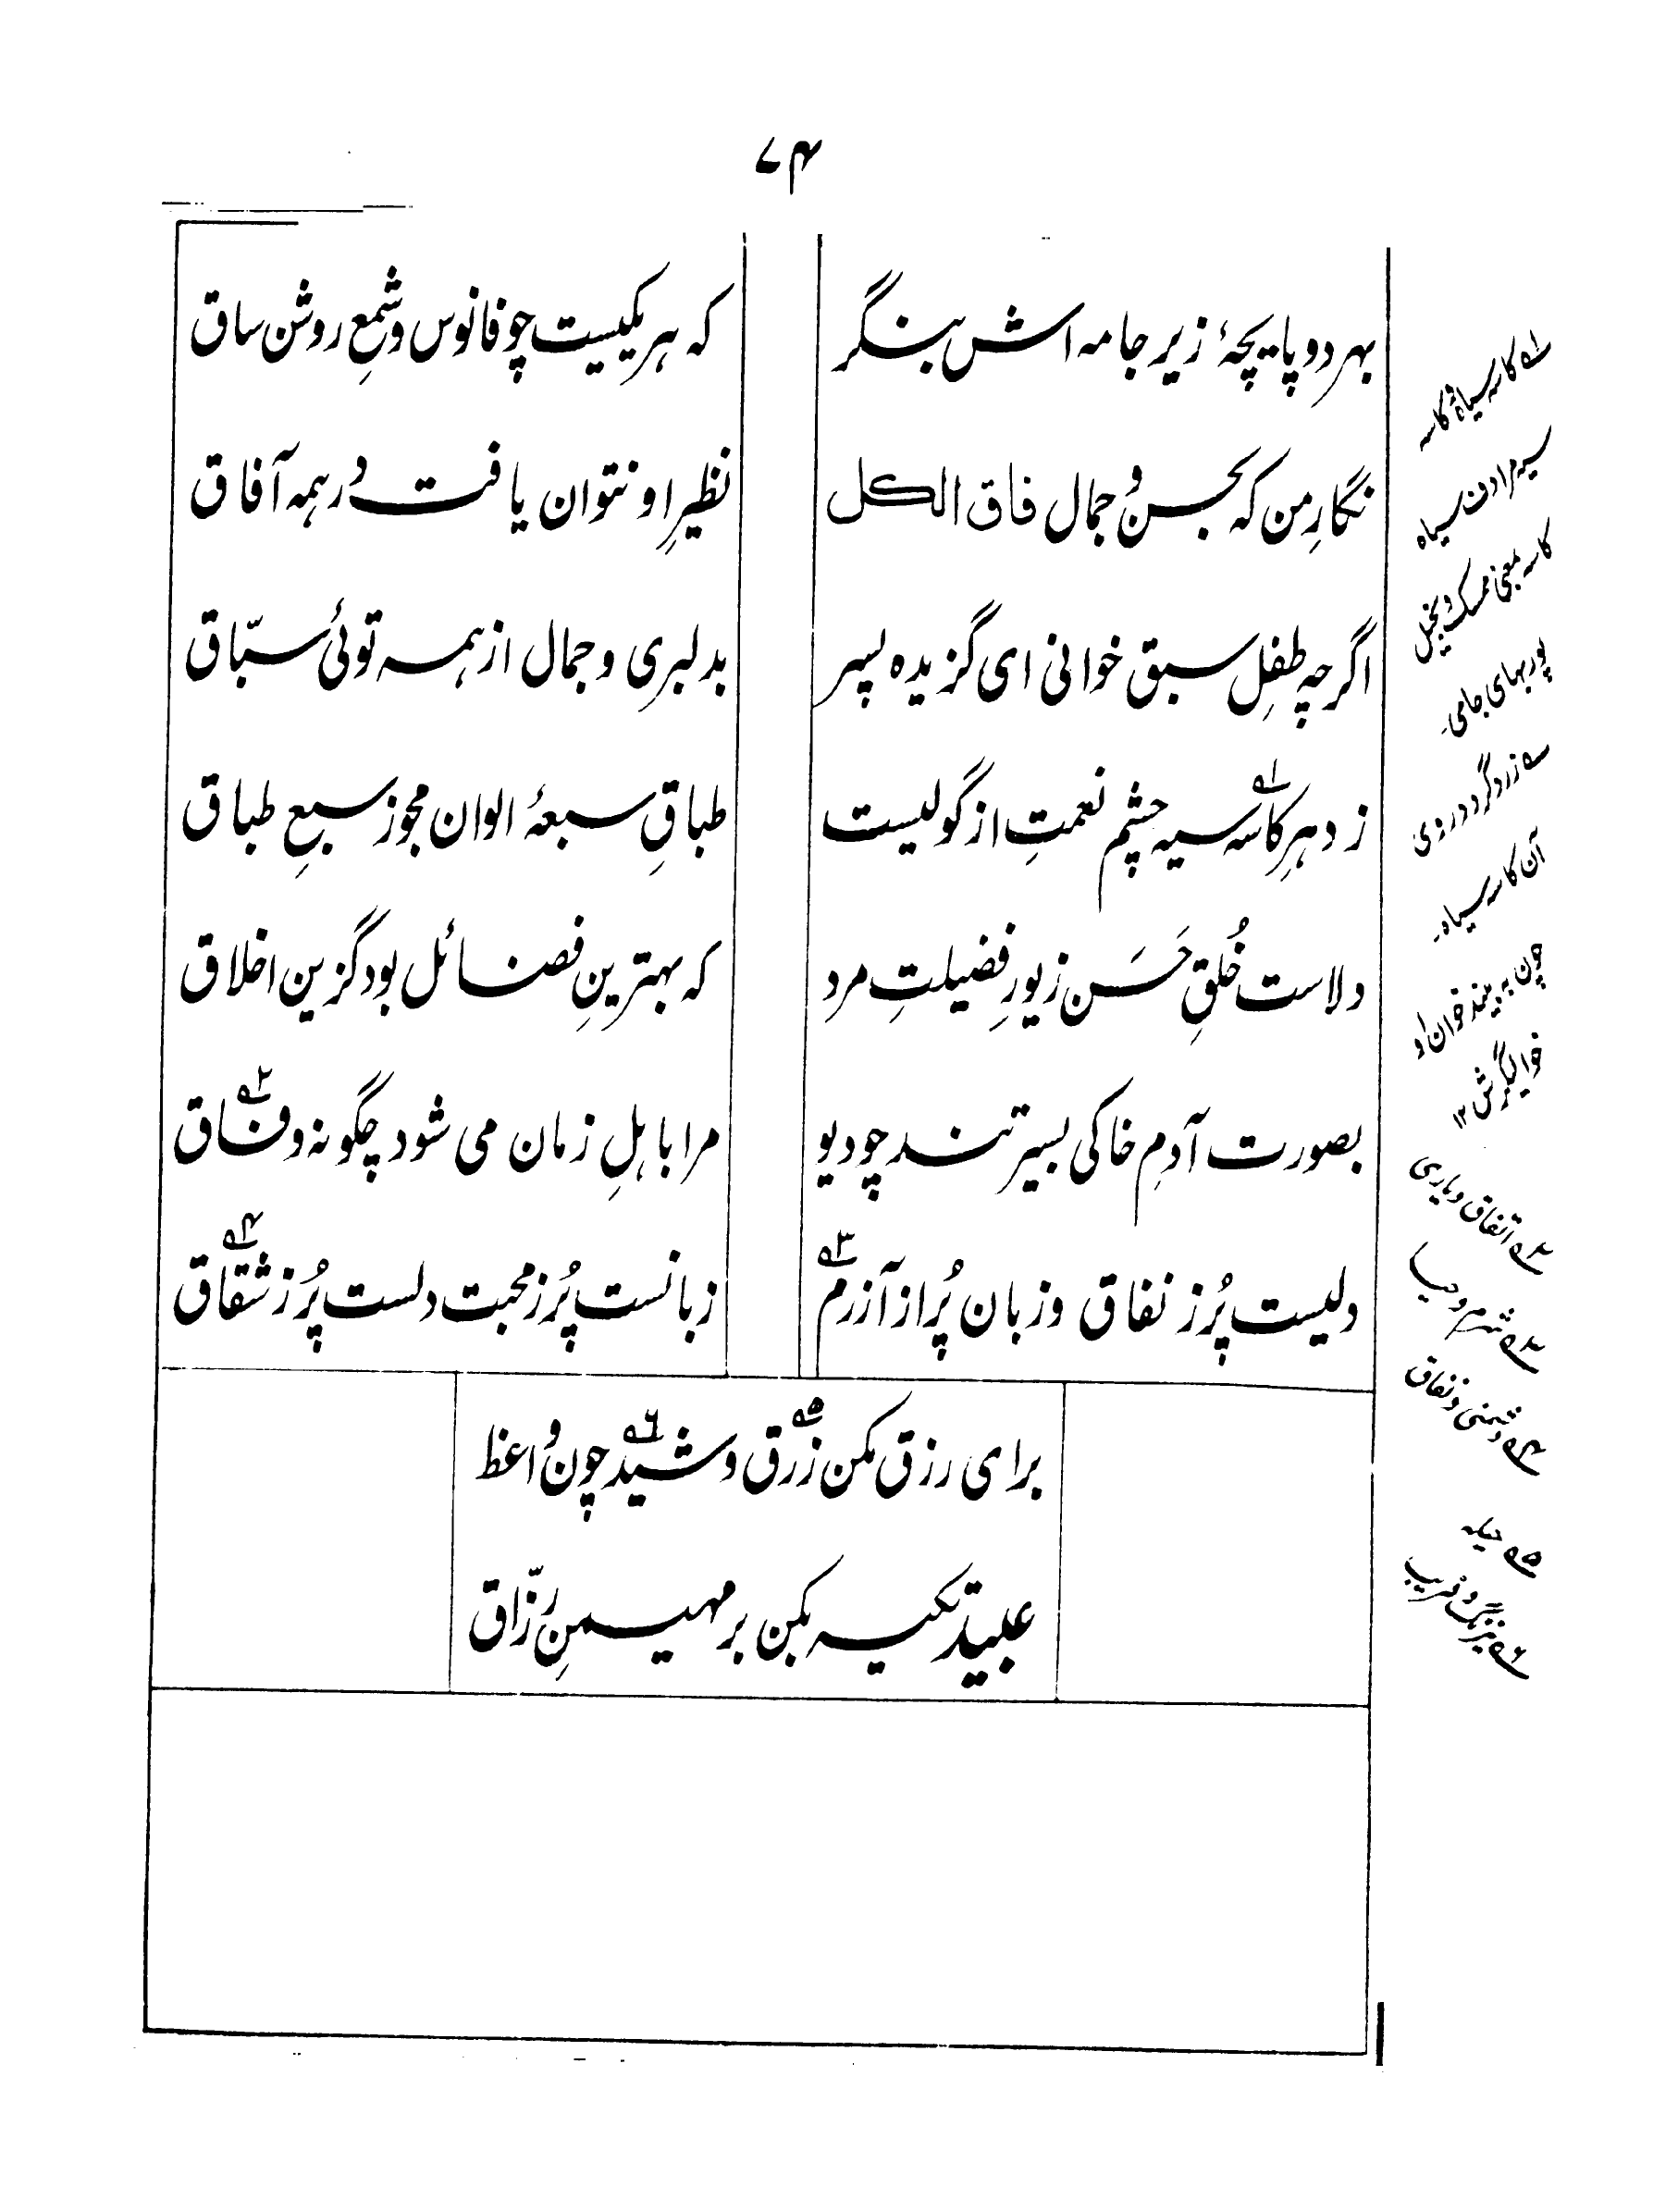 ۷۴
بهر دو پایچۀ زیر جامه اش بنگر
که هر یکیست چو فانوس و شمعِ روشن ساق
نگارِ من که بحسن و جمال فاق الکل
نظیرِ او نتوان یافت در همه آفاق
اگرچه طفلِ سبق خوانی ای گزیده پسر
بدلبری و جمال از همه توئی سبّاق
ز دهرِ کاسه سیه چشم نعمت ار گولیست
طباقِ سبعۀ الوان مجوز سبعِ طباق
دلاست خُلقِ حَسَن زیورِ فضیلتِ مرد
که بهترینِ فضائل بود گزین اخلاق
بصورت آدمِ خاکی بسیرتند چو دیو
مرا باهلِ زمان می شود چگونه وفاق
دلیست پُر ز نفاق و زبان پُر از آزرم
زبانست پُر ز محبت دلست پُر ز شقاق
برای رزق مکن زرق و شید چون واعظ
عبید تکیه بکن بر مهیمنِ رزّاق
۱ کاسه سیاه و کاسه
سیه مرادف سیاه
کاسه بمعنی ممسک و بخیل
پور بهای جامی
زرد گردد روی
آن کاسه سیاه
چون به بیند خوان و
خوالیگرش ۱۲
۲ اتفاق و یاری
۳ شرم و حیا
۴ دشمنی و نفاق
۵ حیله
۶ نیرنگ و فریب